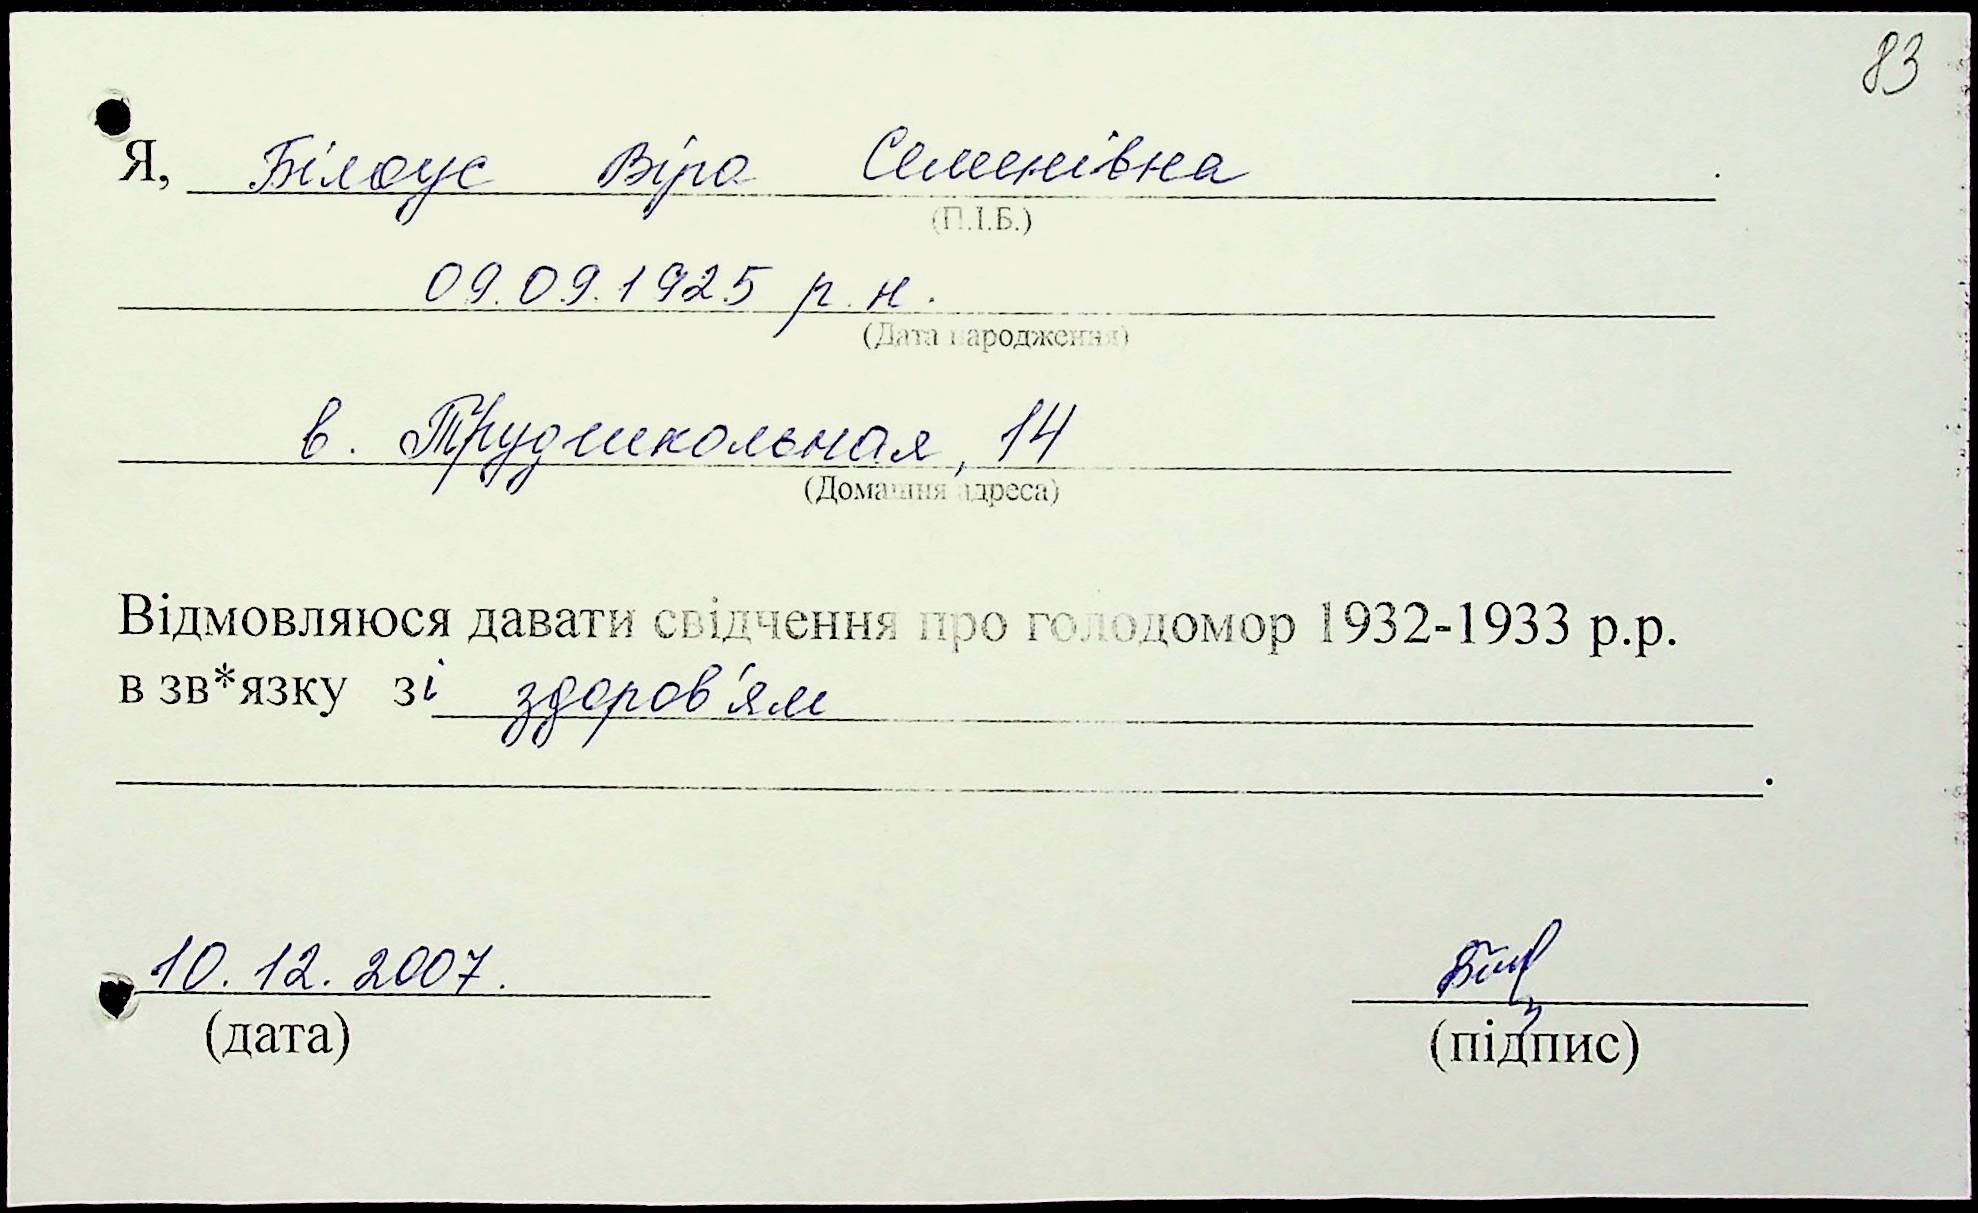 83
Я, Білоус Віра Семенівна .
(П.І.Б.)
09.09.1925 р.н.
(Дата народження)
в. Трудшкольная, 14
(Домашня адреса)
Відмовляюся давати свідчення про голодомор 1932-1933 р.р.
в зв*язку зі здоров'ям
.
10.12.2007.
(дата)
(підпис)